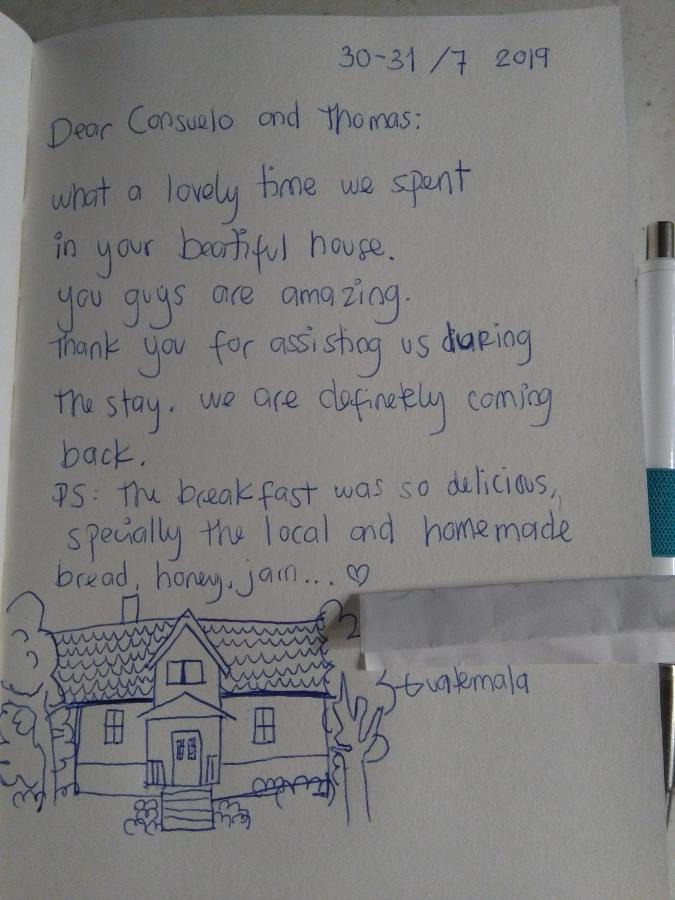 30-31 /7 2019
Dear Consuelo and Thomas:
what a lovely time we spent
in your beatiful house.
you guys are amazing.
Thank you for assisting us during
the stay. we are definetely coming
back.
PS: The breakfast was so delicious,
specially the local and homemade
bread, honey, jam... ♡
Guatemala